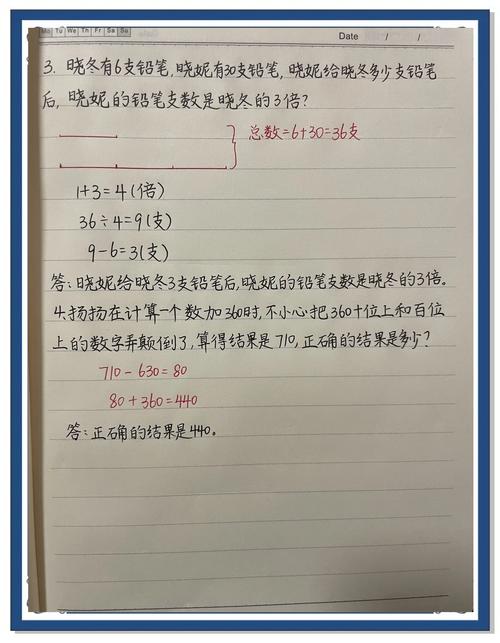 Mo Tu We Th Fr Sa Su
Date / /
3. 晓冬有6支铅笔,晓妮有30支铅笔,晓妮给晓冬多少支铅笔
后,晓妮的铅笔支数是晓冬的3倍?
总数=6+30=36支
1+3=4(倍)
36÷4=9(支)
9-6=3(支)
答:晓妮给晓冬3支铅笔后,晓妮的铅笔支数是晓冬的3倍。
4.扬扬在计算一个数加360时,不小心把360十位上和百位
上的数字弄颠倒了,算得结果是710,正确的结果是多少?
710-630=80
80+360=440
答:正确的结果是440。